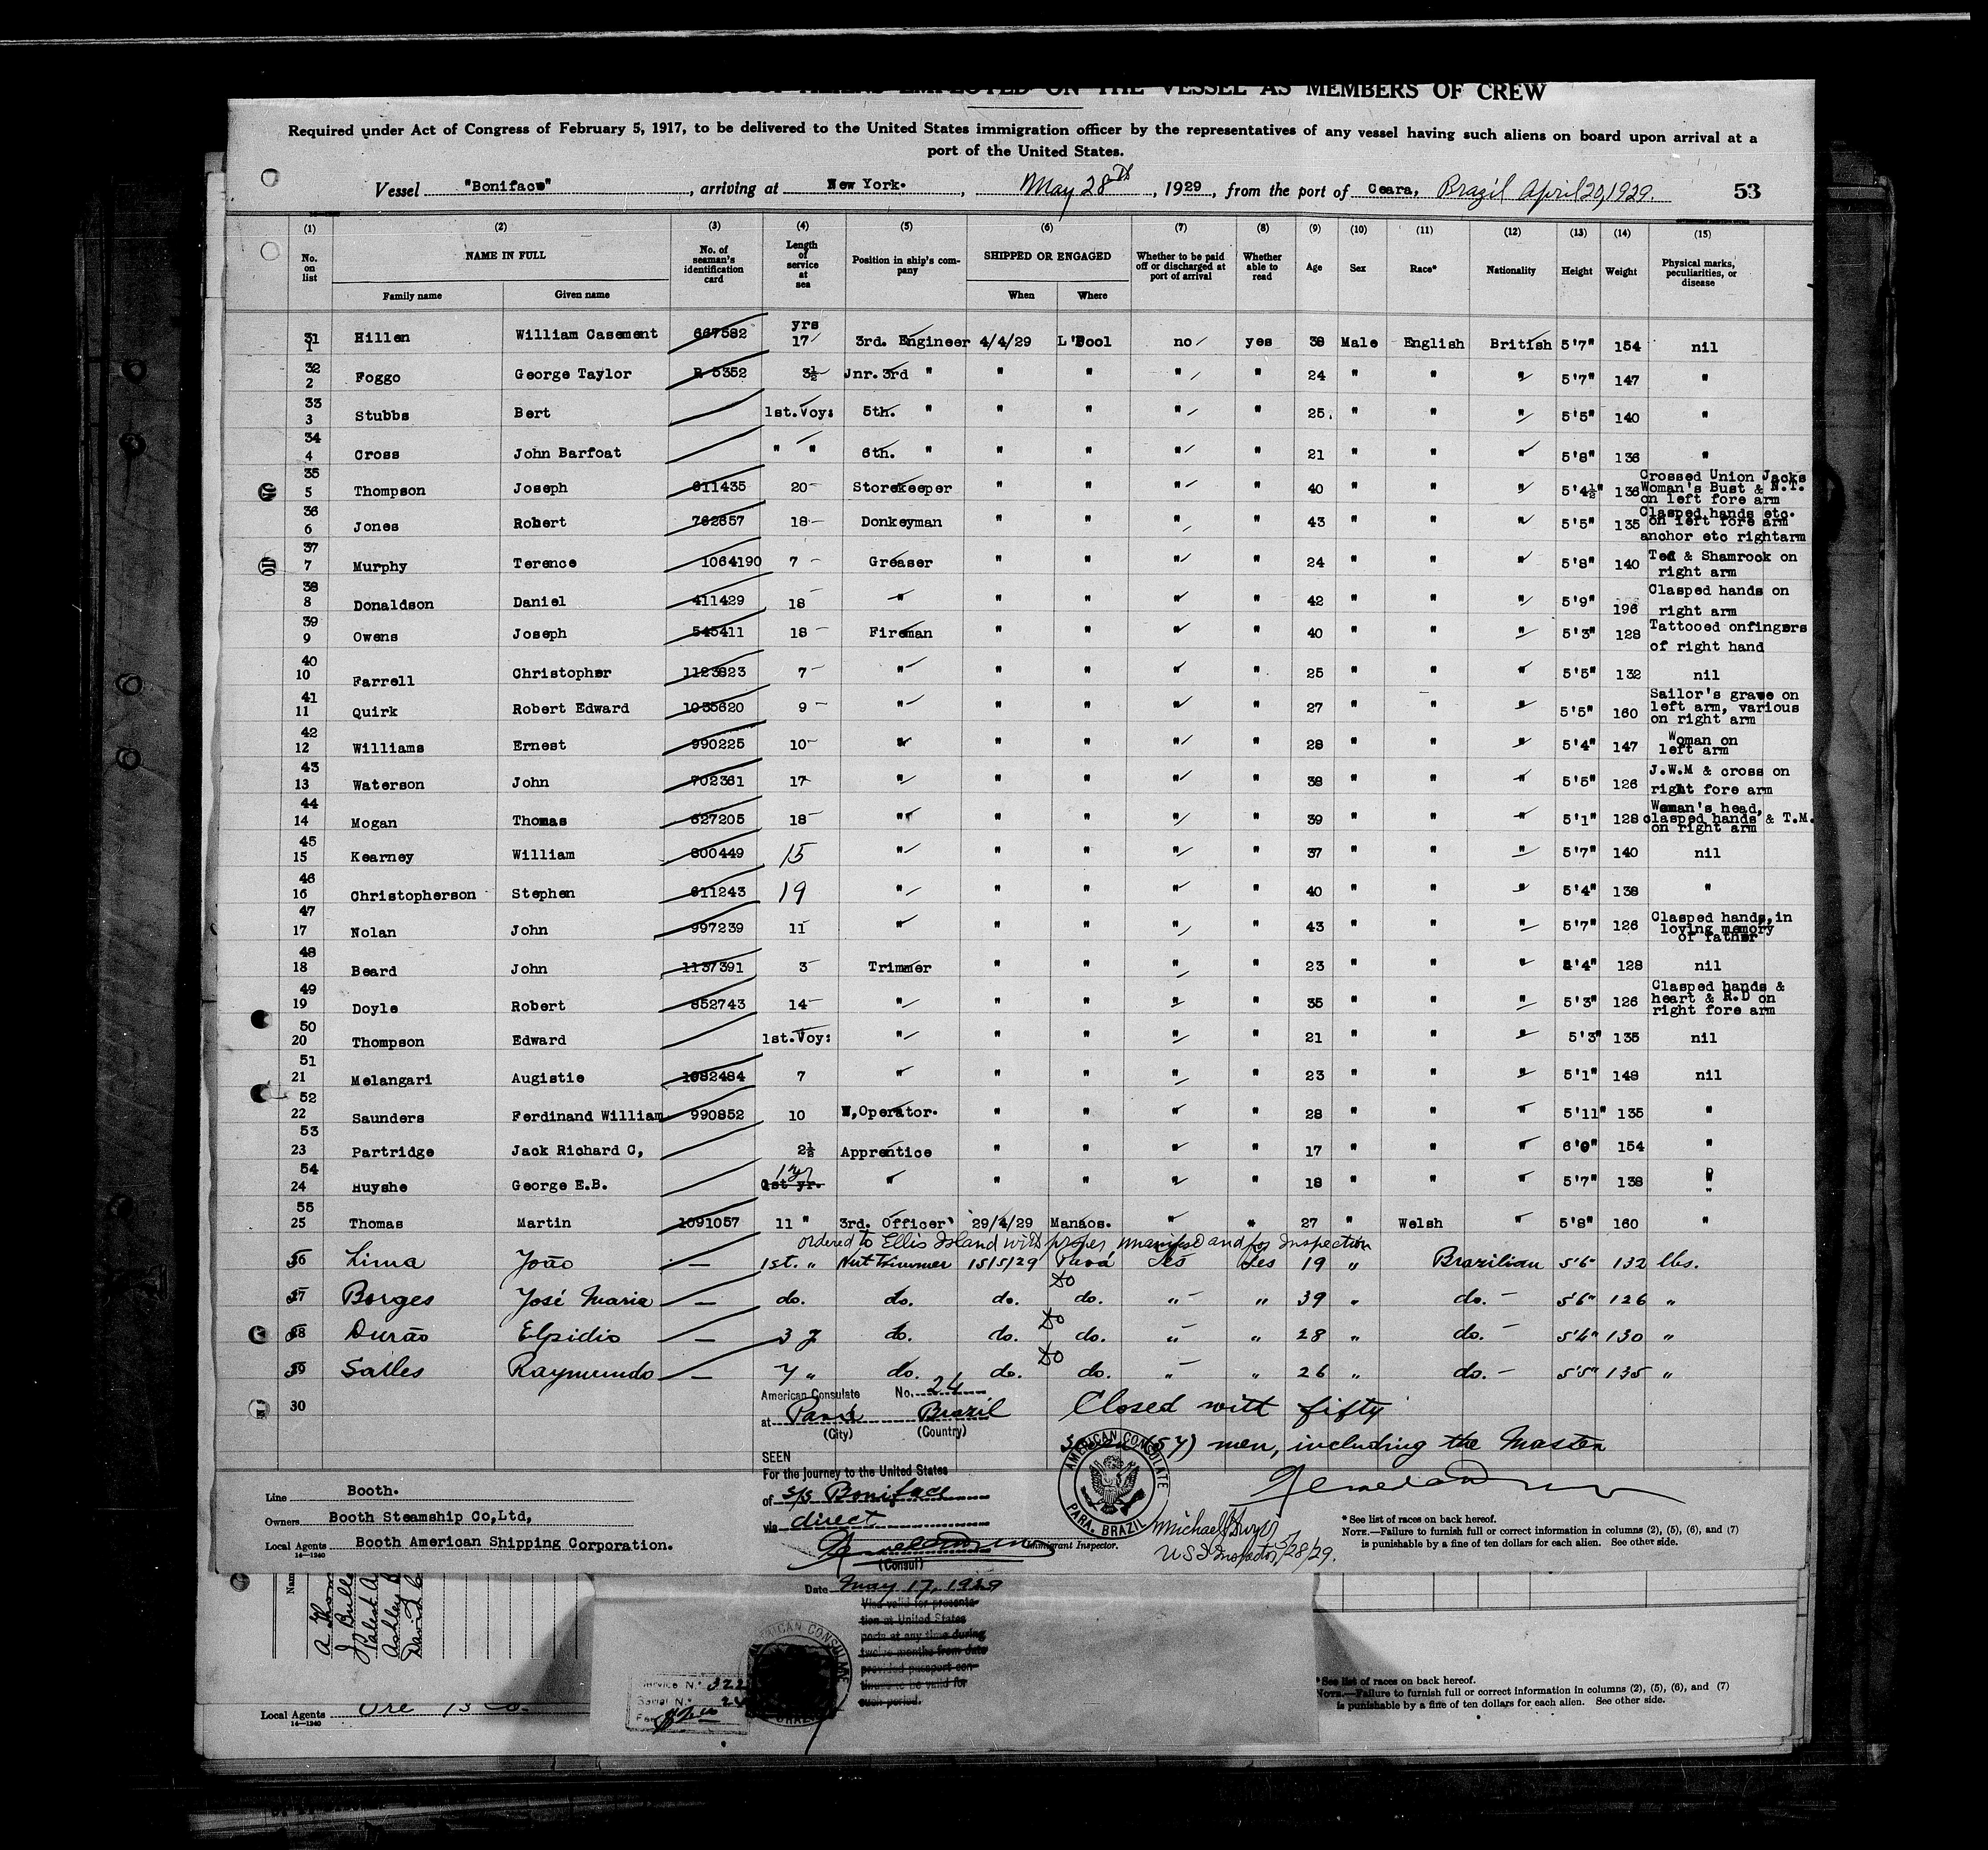 LIST OF ALIENS EMPLOYED ON THE VESSEL AS MEMBERS OF CREW
Required under Act of Congress of February 5, 1917, to be delivered to the United States immigration officer by the representatives of any vessel having such aliens on board upon arrival at a
port of the United States.
Vessel "Boniface", arriving at New York., May 28th, 1929, from the port of Ceara, Brazil April 20, 1929. 53
(1) (2) (3) (4) (5) (6) (7) (8) (9) (10) (11) (12) (13) (14) (15)
No. on list NAME IN FULL No. of seaman's identification card Length of service at sea Position in ship's company SHIPPED OR ENGAGED Whether to be paid off or discharged at port of arrival Whether able to read Age Sex Race* Nationality Height Weight Physical marks, peculiarities, or disease
Family name Given name When Where
31 1 Hillen William Casement 667582 yrs 17 3rd. Engineer 4/4/29 L'Pool no yes 38 Male English British 5'7" 154 nil
32 2 Foggo George Taylor R 5352 3½ Jnr. 3rd " " " " " 24 " " " 5'7" 147 "
33 3 Stubbs Bert 1st.Voy: 5th. " " " " " 25 " " " 5'5" 140 "
34 4 Cross John Barfoat " " 6th. " " " " " 21 " " " 5'8" 136 "
35 5 Thompson Joseph 611435 20 Storekeeper " " " " 40 " " " 5'4½" 136 Crossed Union Jacks Woman's Bust & N.T. on left fore arm
36 6 Jones Robert 762657 18 Donkeyman " " " " 43 " " " 5'5" 135 Clasped hands etc. on left fore arm anchor etc rightarm
37 7 Murphy Terence 1064190 7 Greaser " " " " 24 " " " 5'8" 140 Ted & Shamrock on right arm
38 8 Donaldson Daniel 411429 18 " " " " " 42 " " " 5'9" 196 Clasped hands on right arm
39 9 Owens Joseph 545411 18 Fireman " " " " 40 " " " 5'3" 128 Tattooed onfingers of right hand
40 10 Farrell Christopher 1123823 7 " " " " " 25 " " " 5'5" 132 nil
41 11 Quirk Robert Edward 1035620 9 " " " " " 27 " " " 5'5" 160 Sailor's grave on left arm, various on right arm
42 12 Williams Ernest 990225 10 " " " " " 28 " " " 5'4" 147 Woman on left arm
43 13 Waterson John 702361 17 " " " " " 38 " " " 5'5" 126 J.W.M & cross on right fore arm
44 14 Mogan Thomas 627205 18 " " " " " 39 " " " 5'1" 128 Woman's head, clasped hands & T.M. on right arm
45 15 Kearney William 800449 15 " " " " " 37 " " " 5'7" 140 nil
46 16 Christopherson Stephen 611243 19 " " " " " 40 " " " 5'4" 138 "
47 17 Nolan John 997239 11 " " " " " 43 " " " 5'7" 126 Clasped hands, in loving memory of father
48 18 Beard John 1137391 3 Trimmer " " " " 23 " " " 5'4" 128 nil
49 19 Doyle Robert 852743 14 " " " " " 35 " " " 5'3" 126 Clasped hands & heart & R.D on right fore arm
50 20 Thompson Edward 1st.Voy: " " " " " 21 " " " 5'3" 135 nil
51 21 Melangari Augistie 1082484 7 " " " " " 23 " " " 5'1" 148 nil
52 22 Saunders Ferdinand William 990852 10 W,Operator. " " " " 28 " " " 5'11" 135 "
53 23 Partridge Jack Richard C, 2½ Apprentice " " " " 17 " " " 6'0" 154 "
54 24 Huyshe George E.B. 1 yr 1st yr. " " " " " 18 " " " 5'7" 138 "
55 25 Thomas Martin 1091057 11 " 3rd. Officer 29/4/29 Manaos. " " 27 " Welsh " 5'8" 160 "
ordered to Ellis Island with proper manifest and for Inspection
26 Lima João — 1st. " Nut Trimmer 15/5/29 Pará Yes Yes 19 " Brazilian 5'6" 132 lbs.
27 Borges José Maria — do. do. do. do. " " 39 " do. 5'6" 126 "
28 Durão Elpidio — 3 y do. do. do. " " 28 " do. 5'4" 130 "
29 Salles Raymundo — 7 " do. do. do. " " 26 " do. 5'5" 135 "
30
American Consulate No. 24
at Pará Brazil
(City) (Country)
Closed with fifty
seven (57) men, including the Master
SEEN
For the journey to the United States
of S/S Boniface
via direct
(Consul)
Date May 17, 1929
AMERICAN CONSULATE PARA, BRAZIL
Immigrant Inspector.
U S I Inspector 5/28/29.
Line Booth.
Owners Booth Steamship Co,Ltd,
Local Agents Booth American Shipping Corporation.
14—1240
* See list of races on back hereof.
NOTE.—Failure to furnish full or correct information in columns (2), (5), (6), and (7)
is punishable by a fine of ten dollars for each alien. See other side.
Visa valid for presenta-
tion at United States
ports at any time during
twelve months from date
provided passport con-
tinues to be valid for
such period.
Service No. 322
Serial No.
Fee
Local Agents
14—1240
* See list of races on back hereof.
NOTE.—Failure to furnish full or correct information in columns (2), (5), (6), and (7)
is punishable by a fine of ten dollars for each alien. See other side.